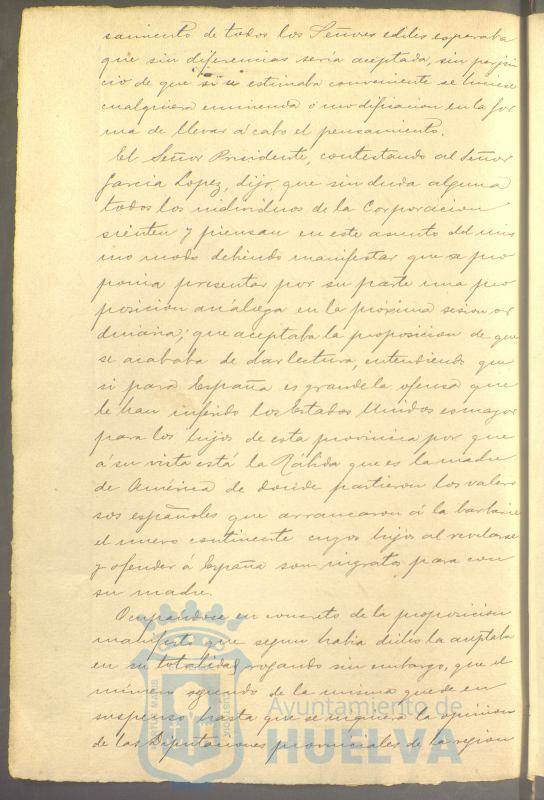 samiento de todos los Señores ediles esperaba
que sin diferencias seria aceptada, sin perjui
cio de que si se estimaba conveniente se hiciese
cualquiera enmienda ó modificacion en la for
ma de llevar á cabo el pensamiento.
El Señor Presidente, contestando al Señor
Garcia Lopez, dijo, que sin duda alguna
todos los individuos de la Corporacion
sienten y piensan en este asunto del mis
mo modo debiendo manifestar que se pro
ponia presentar por su parte una pro
posicion análoga en la próxima sesion or
dinaria; que aceptaba la proposicion de que
se acababa de dar lectura, entendiendo que
si para España es grande la ofensa que
le han inferido los Estados Unidos es mayor
para los hijos de esta provincia por que
á su vista está la Rábida que es la madre
de América de donde partieron los valero
sos españoles que arrancaron á la barbarie
el nuevo continente cuyos hijos al revelarse
y ofender á España son ingratos para con
su madre.
Ocupandose en concreto de la proposicion
manifestó que segun habia dicho la aceptaba
en su totalidad, rogando sin embargo, que el
número segundo de la misma quede en
suspenso, hasta que se inquiera la opinion
de las Diputaciones provinciales de la region
Ayuntamiento de
HUELVA